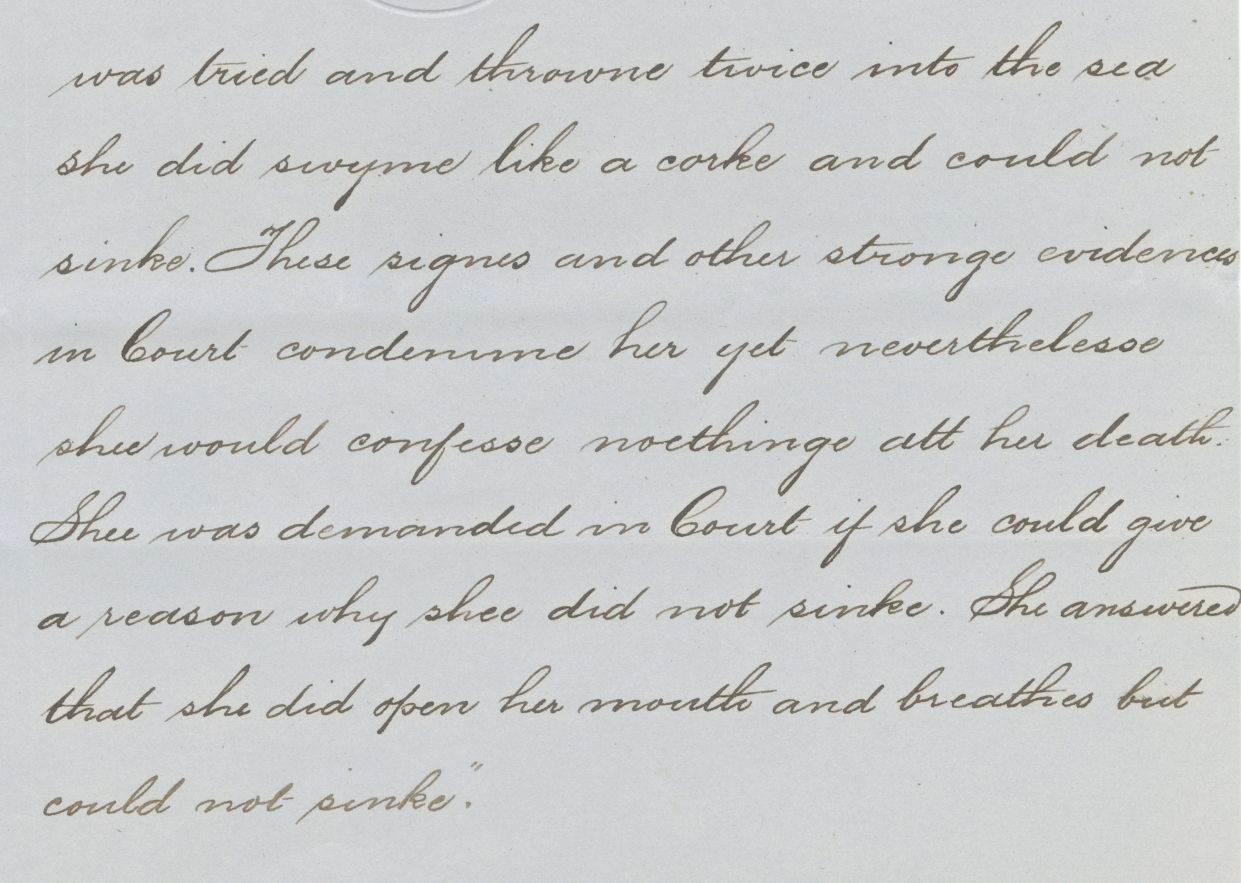 was tried and throwne twice into the sea
she did swyme like a corke and could not
sinke. These signes and other stronge evidences
in Court condemme her yet neverthelesse
shee would confesse noethinge att her death.
Shee was demanded in Court if she could give
a reason why shee did not sinke. She answered
that she did open her mouth and breathes but
could not sinke."